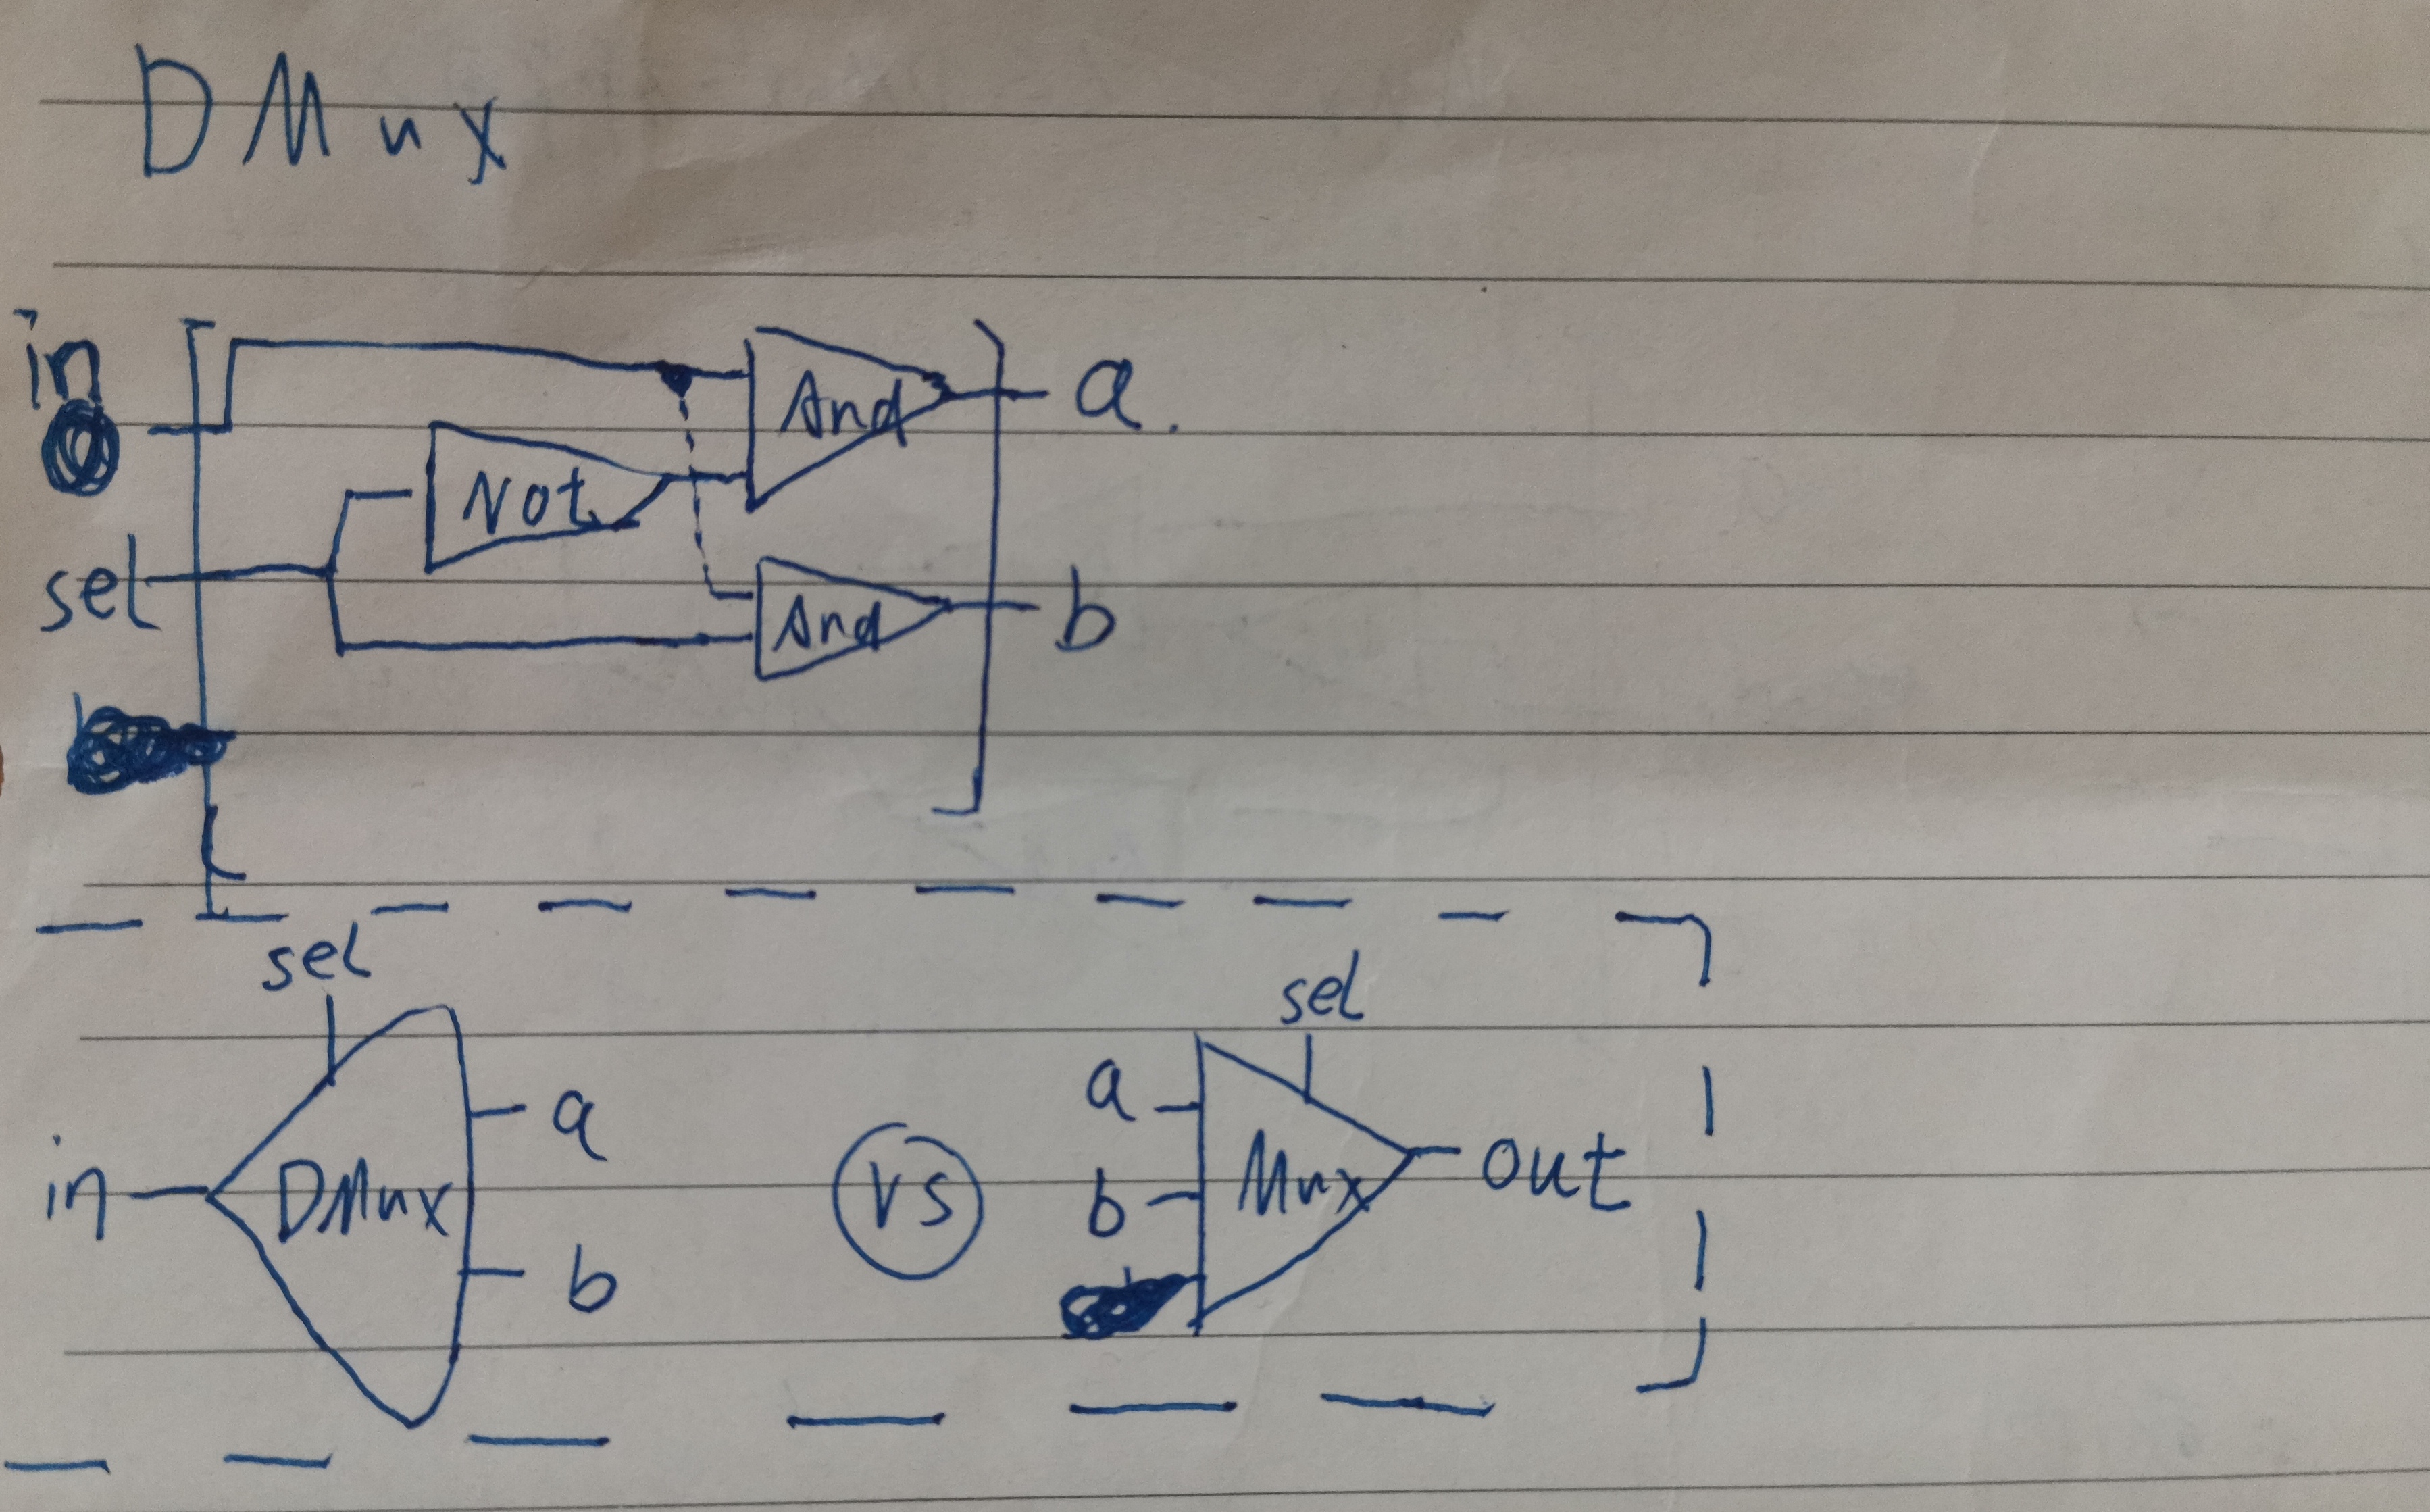 DMux
in
And
a.
Not
sel
And
b
sel
sel
a
a
in
DMux
VS
b
Mux
out
b